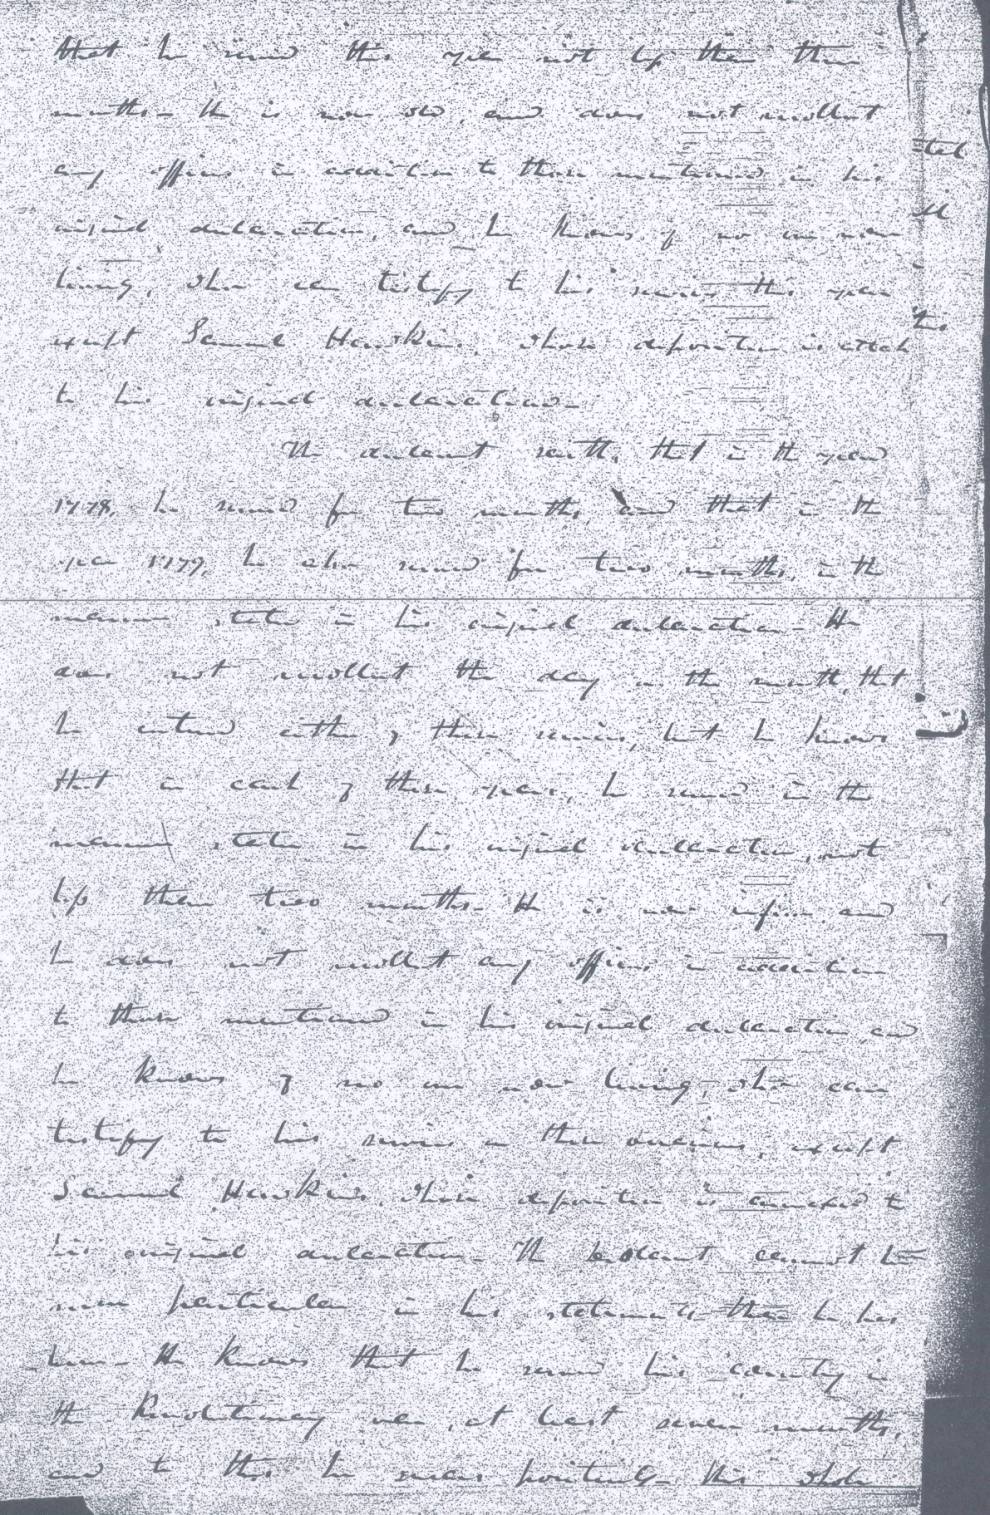 that he served this year not less than three
months - He is now old, and does not recollect
any officers in addition to those mentioned in his
original declaration, and he knows of no one now
living, who can testify to his services this year
except Samuel Hawkins, whose deposition is attach
to his original declaration -
The declarant saith, that in the year
1778, he served for two months, and that in the
year 1779, he also served for two months, in the
manner stated in his original declaration - He
does not recollect the day or the month, that
he entered either of these services, but he knows
that in each of these years, he served in the
manner stated in his original declaration, not
less than two months - He is now infirm and
he does not recollect any officers in addition
to those mentioned in his original declaration and
he knows of no one now living, who can
testify to his services on these occasions, except
Samuel Hawkins, whose deposition is annexed to
his original declaration - The declarant cannot be
more particular in his statements than he has
been - He knows that he served his country in
the Revolutionary war, at least seven months,
and to this he swears positively - This whole